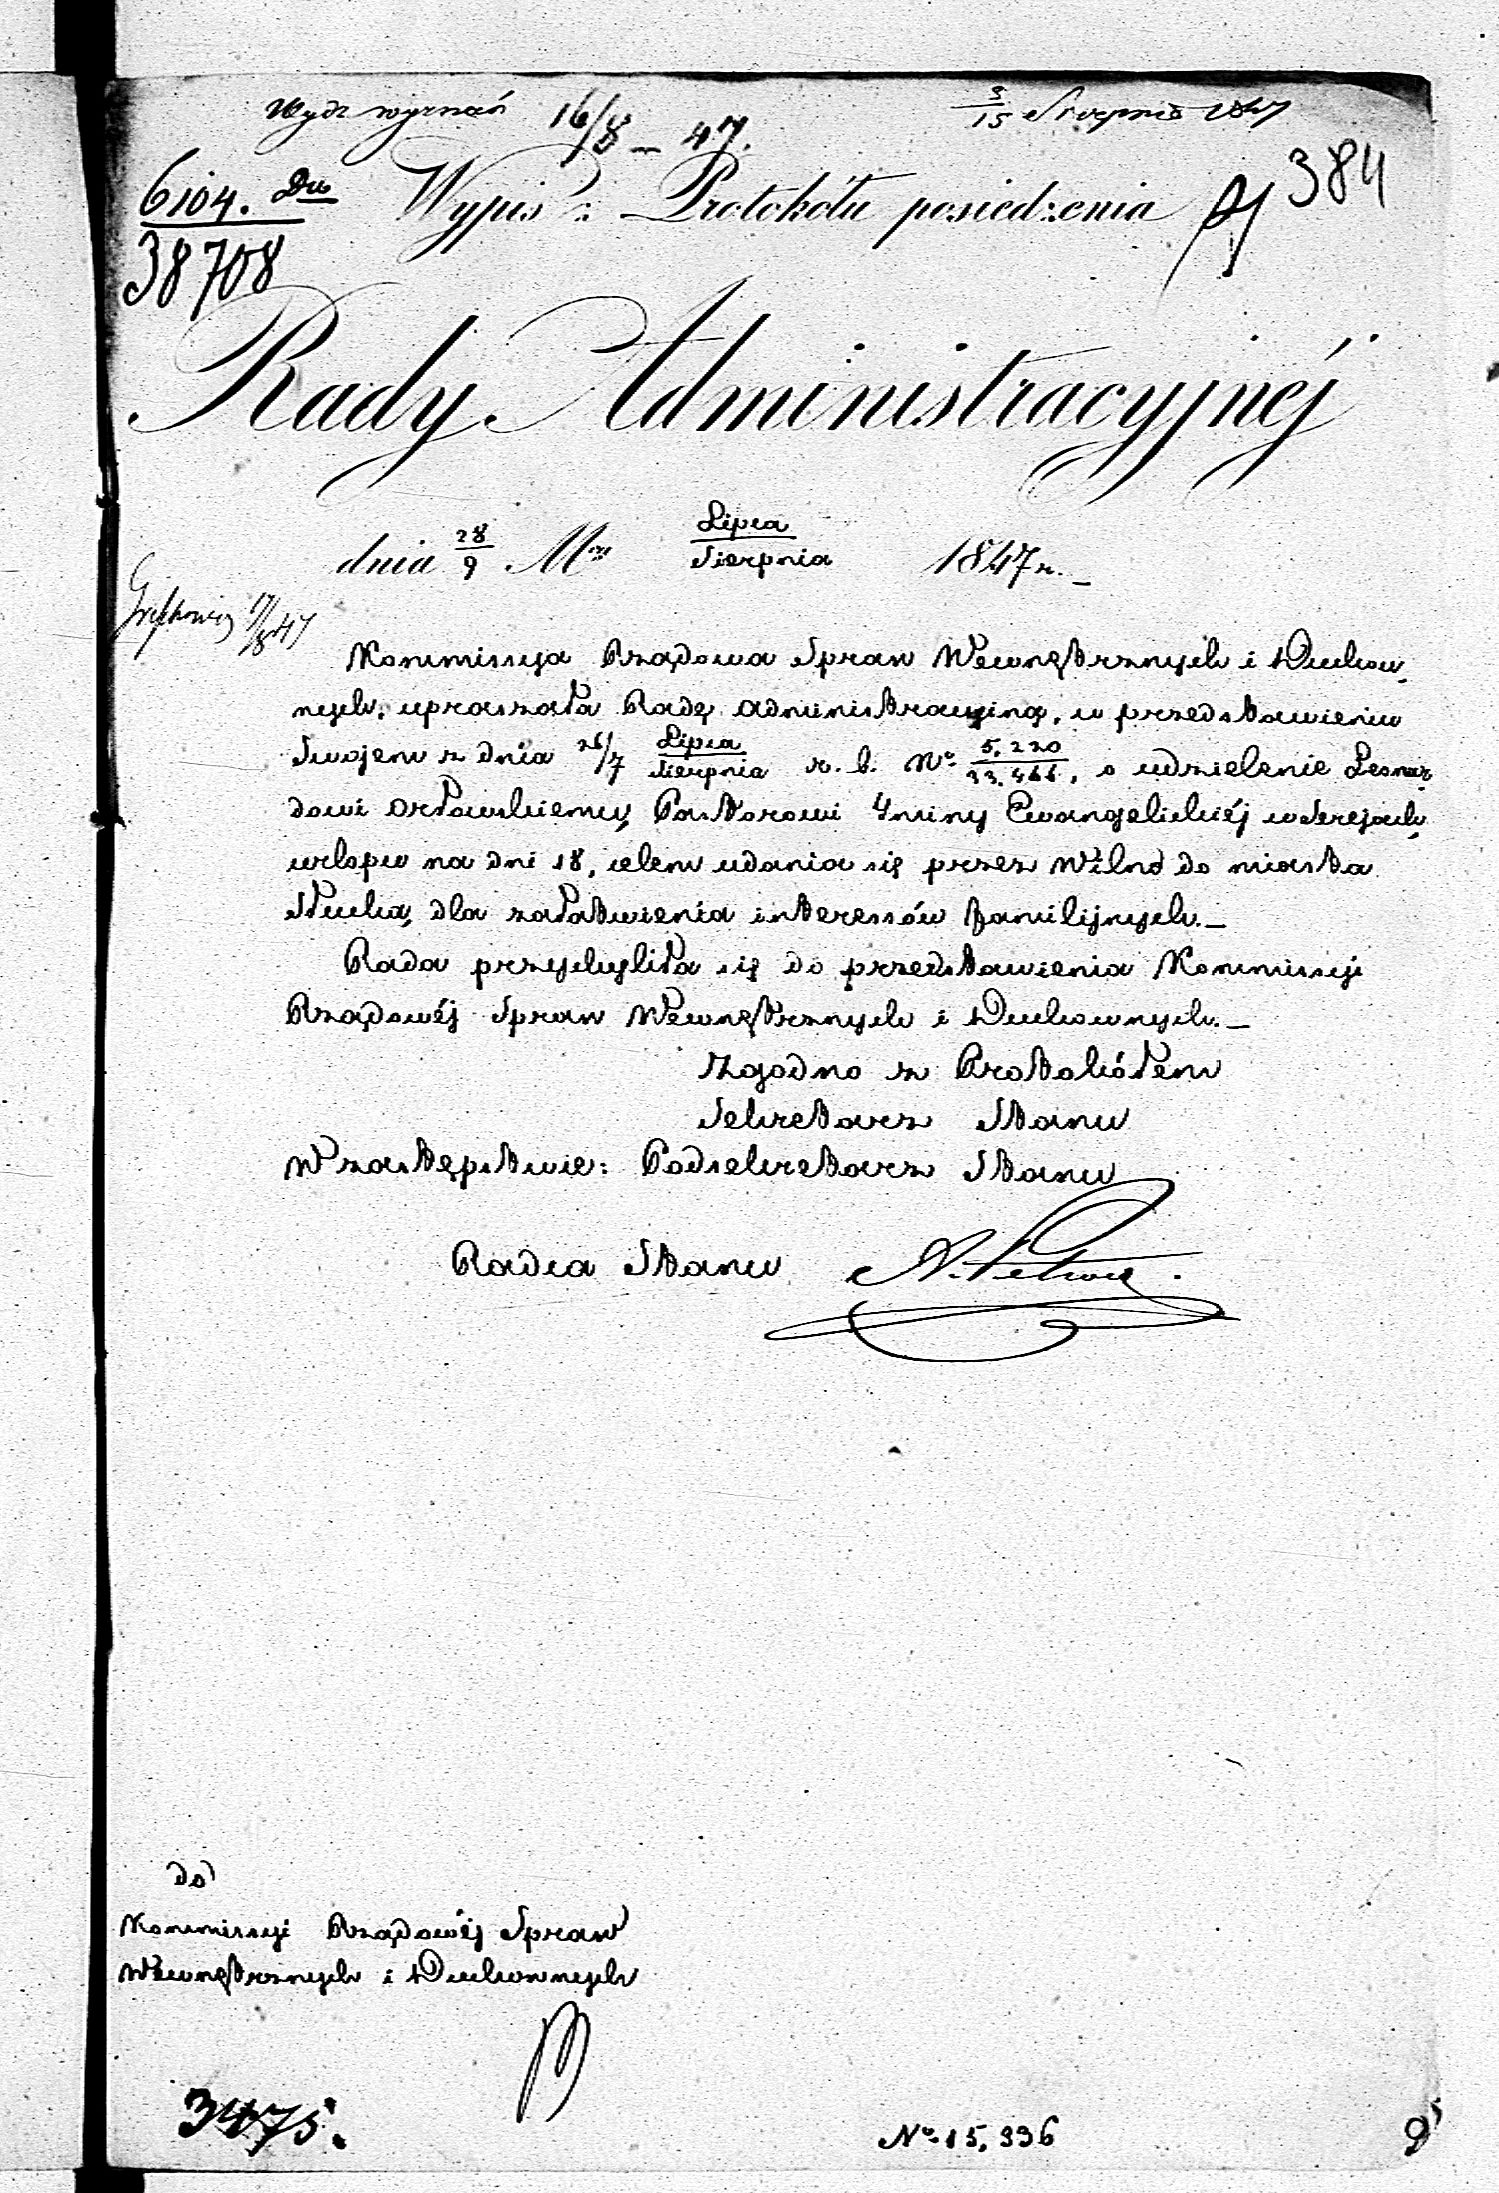 Wydz wyznań 16/8 – 47. 3/15 Sierpnia 1847
6104. Du 384
38708
Wypis z Protokółu posiedzenia
Rady Administracyjnéj
dnia 28/9 Mca Lipca/Sierpnia 1847 r. –
17/8 47
Kommissya Rządowa Spraw Wewnętrznych i Duchow-
nych, upraszała Radę Administracyjną, w przedstawieniu
Swojem z dnia 26/7 Lipca/Sierpnia r. b. No 5,220/33,466, o udzielenie Leonar-
dowi Orłowskiemu, Pastorowi Gminy Ewangelickiéj w Serejach,
urlopu na dni 18, celem udania się przez Wilno do miasta
Słucka, dla załatwienia interessów familijnych. –
Rada przychyliła się do przedstawienia Kommissyi
Rządowéj Spraw Wewnętrznych i Duchownych. –
Zgodno z Protokółem
Sekretarz Stanu
W zastępstwie: Podsekretarz Stanu
Radca Stanu
do
Kommissyi Rządowéj Spraw
Wewnętrznych i Duchownych
3475.
No 15,336
95